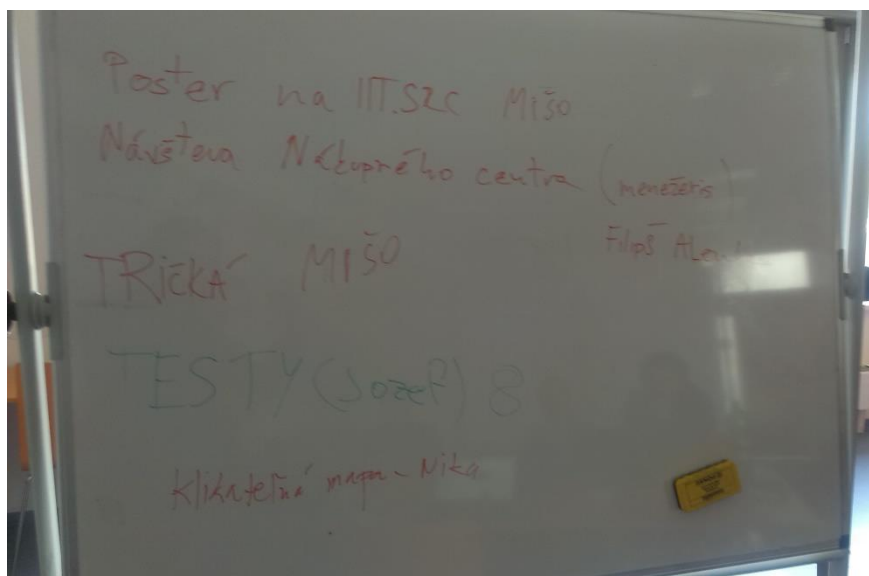 Poster na IIT.SRC MIŠO
Návšteva Nákupného centra (menežeris)
Filip Š
TRičKÁ MIŠO
TESTY (Jozef) 8
Klikateľná mapa - Nika